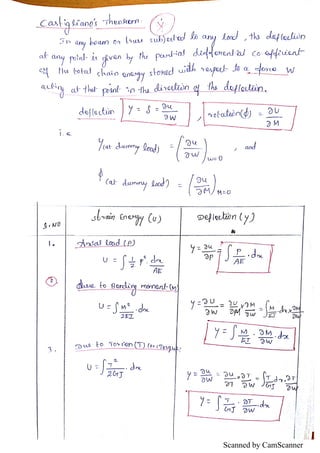 Castigliano's Theorem:
In any beam or truss subjected to any load, the deflection
at any point is given by the partial differential co-efficient
of the total strain energy stored with respect to a force W
acting at that point in the direction of the deflection.
deflection y = δ = ∂u/∂W , rotation(ϕ) = ∂U/∂M
i.e
y(at dummy load) = (∂u/∂W)W=0 , and
ϕ(at dummy load) = (∂u/∂M)M=0
S.NO Strain Energy (U) Deflection (y)
1. Axial Load (P)
U = ∫ 1/2 P² dx/AE
y = ∂u/∂P = ∫ P/AE . dx
2. due to Bending moment (M)
U = ∫ M²/2EI . dx
y = ∂U/∂W = ∂U/∂M × ∂M/∂W = ∫ M/EI dx × ∂M/∂W
y = ∫ M/EI . ∂M/∂W dx
3. Due to Torsion (T)
U = ∫ T²/2GJ . dx
y = ∂u/∂W = ∂u/∂T × ∂T/∂W = ∫ T/GJ dx . ∂T/∂W
y = ∫ T/GJ . ∂T/∂W dx
Scanned by CamScanner